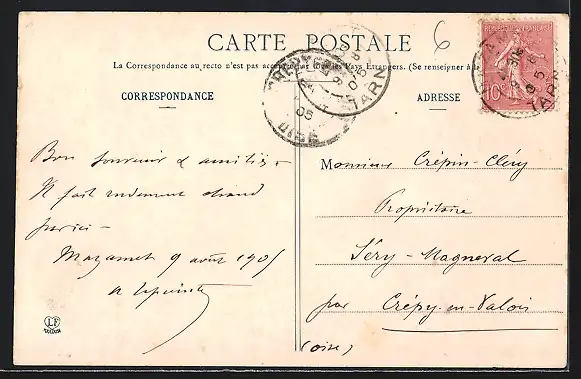 CARTE POSTALE
6
La Correspondance au recto n'est pas acceptée par tous les Pays Etrangers. (Se renseigner à la
CORRESPONDANCE
ADRESSE
TARN
05
OISE
TARN
10c
Bon souvenir & amitiés -
Il fait rudement chaud
par ici -
Mazamet 9 août 1905
Monsieur Crépin-Cléry
Propriétaire
Séry-Magneval
par Crépy-en-Valois
(Oise)
LF